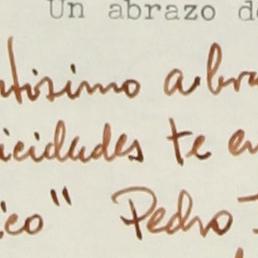 Un abrazo de
ntisimo abra
icidades te en
ico" Pedro